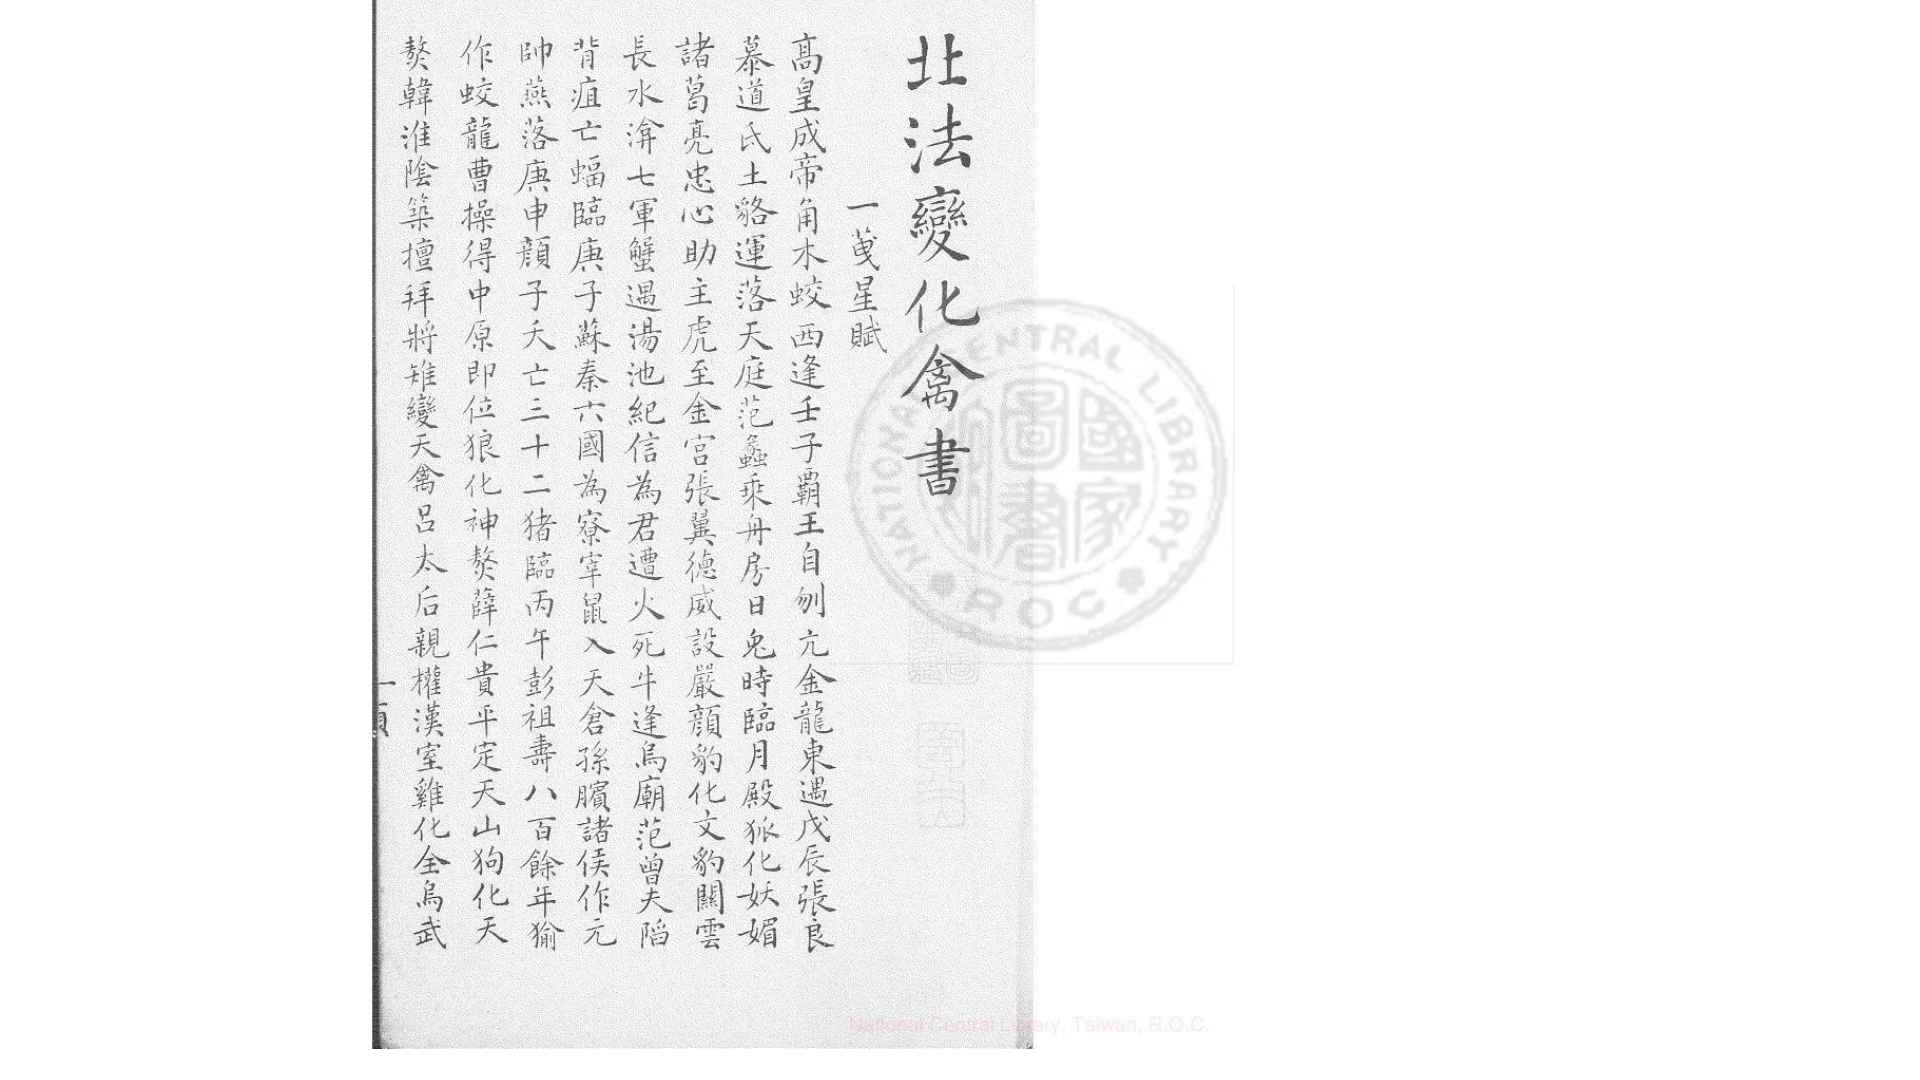 北法變化禽書
一曵星賦
髙皇成帝角木蛟西逢壬子覇王自刎亢金龍東遇戊辰張良
慕道氐土貉運落天庭范蠡乗舟房日兔時臨月殿狐化妖媚
諸葛亮忠心助主虎至金宮張翼德威設嚴顔豹化文豹關雲
長水渰七軍蟹遇湯池紀信為君遭火死牛逢烏廟范曾夫
背疽亡蝠臨庚子蘇秦六國為寮宰鼠入天倉孫臏諸侯作元
帥燕落庚申顔子夭亡三十二猪臨丙午彭祖壽八百餘年㺄
作蛟龍曹操得中原即位狼化神獒薛仁貴平定天山狗化天
獒韓淮陰築擅拜將雉變天禽呂太后親權漢室雞化全烏武
NATIONAL CENTRAL LIBRARY
R.O.C
國家圖書
National Central Library, Taiwan, R.O.C.